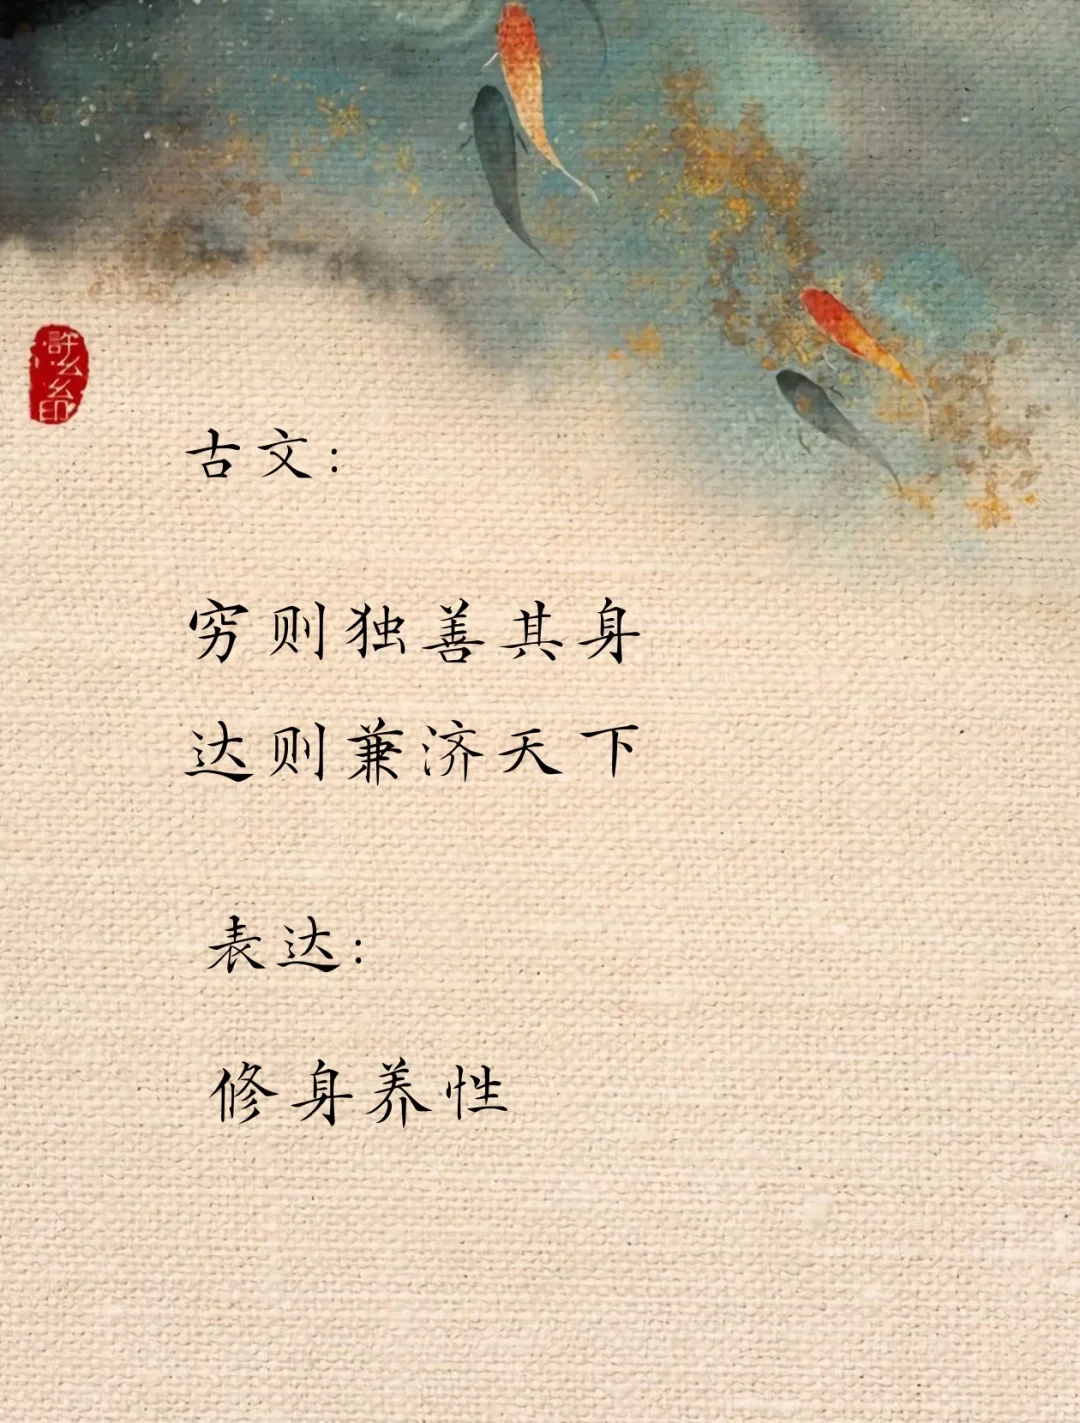 古文:
穷则独善其身
达则兼济天下
表达:
修身养性